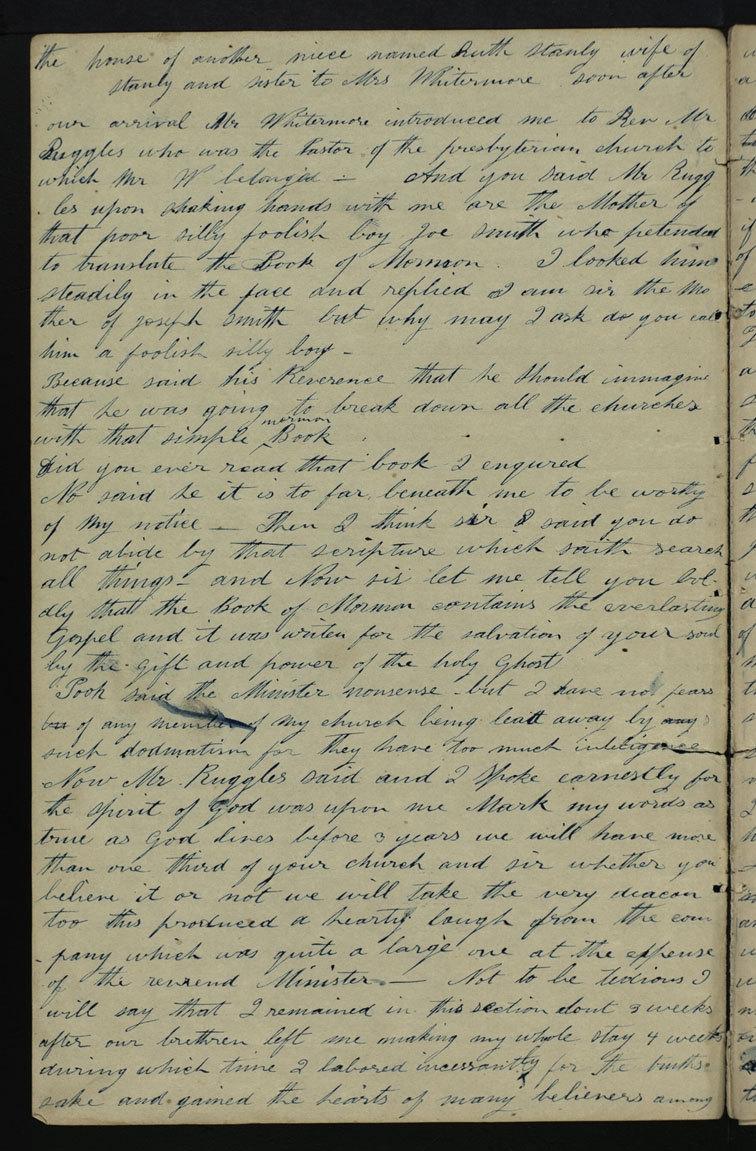 the house of another niece named Ruth Stanly wife of
stanly and sister to Mrs Whitermore soon after
our arrival Mr Whitermore introduced me to Rev Mr
Ruggles who was the Pastor of the presbyterian church to
which Mr W belonged — And you said Mr Rugg
les upon shaking hands with me are the Mother of
that poor silly foolish boy Joe smith who pretended
to translate the Book of Mormon. I looked him
steadily in the face and replied I am sir the Mo
ther of joseph smith but why may I ask do you call
him a foolish silly boy —
Because said his Reverence that he should immagine
that he was going to break down all the churches
with that simple mormon Book
did you ever read that book I enqured
No said he it is to far beneath me to be worthy
of my notice — Then I think sir I said you do
not abide by that scripture which saith search
all things — and Now sir let me tell you bol-
dly that the Book of Mormon contains the everlasting
Gospel and it was writen for the salvation of your soul
by the gift and power of the holy Ghost
Pooh said the Minister nonsense - but I have not fears
of any member of my church being lead away by any
such dodmatism for they have too much inteligence
Now Mr. Ruggles said and I spoke earnestly for
the spirit of God was upon me Mark my words as
true as God lives before 3 years we will have more
than one third of your church and sir whether you
believe it or not we will take the very deacon
too this produced a hearty laugh from the com
pany which was quite a large one at the expense
of the revrend Minister. — Not to be tedious I
will say that I remained in this section about 3 weeks
after our brethren left me making my whole stay 4 weeks
during which time I labored incessantly for the truths
sake and gained the hearts of many believers among